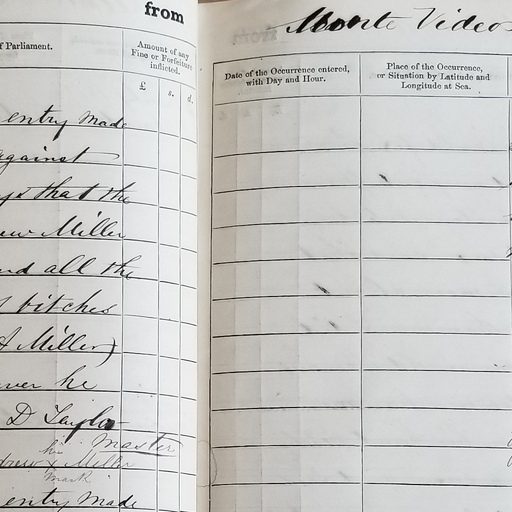 from
f Parliament.
Amount of any
Fine or Forfeiture
inflicted.
£ s. d.
entry made
against
ys that the
ew Miller
nd all the
bitches
A Miller)
ver he
D Taylor
Master
his
drew x Miller
mark
entry made
Monte Video
Date of the Occurrence entered,
with Day and Hour.
Place of the Occurrence,
or Situation by Latitude and
Longitude at Sea.